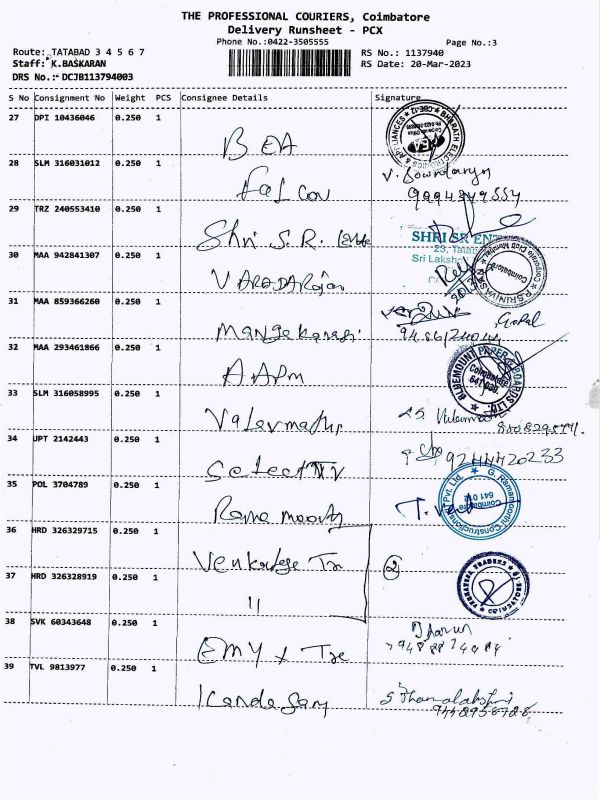 THE PROFESSIONAL COURIERS, Coimbatore
Delivery Runsheet - PCX
Phone No.:0422-3505555
Page No.:3
Route: TATABAD 3 4 5 6 7
RS No.: 1137940
Staff: K.BASKARAN
RS Date: 20-Mar-2023
DRS No.: DCJB113794003
S No Consignment No Weight PCS Consignee Details Signature
27 DPI 10436046 0.250 1
BEA
28 SLM 316031012 0.250 1
Falcon
9994349554
29 TRZ 240553410 0.250 1
Shri S.R.
SHRI SR ENT
23, Tatab
Sri Laksh
30 MAA 942841307 0.250 1
VARADARajan
31 MAA 859366260 0.250 1
Gopal
32 MAA 293461866 0.250 1
AAPM
BLUEMOUNT PAPER BOARDS LTD.
Coimbatore
641 038.
33 SLM 316058995 0.250 1
34 UPT 2142443 0.250 1
9244420233
35 POL 3704789 0.250 1
Rama moorthy
G. Ramamoorthi Constructions Pvt. Ltd.
Coimbatore
641 012
36 HRD 326329715 0.250 1
Venkatesa Tra
2
37 HRD 326328919 0.250 1
"
38 SVK 60343648 0.250 1
EMY
39 TVL 9813977 0.250 1
Kandasamy